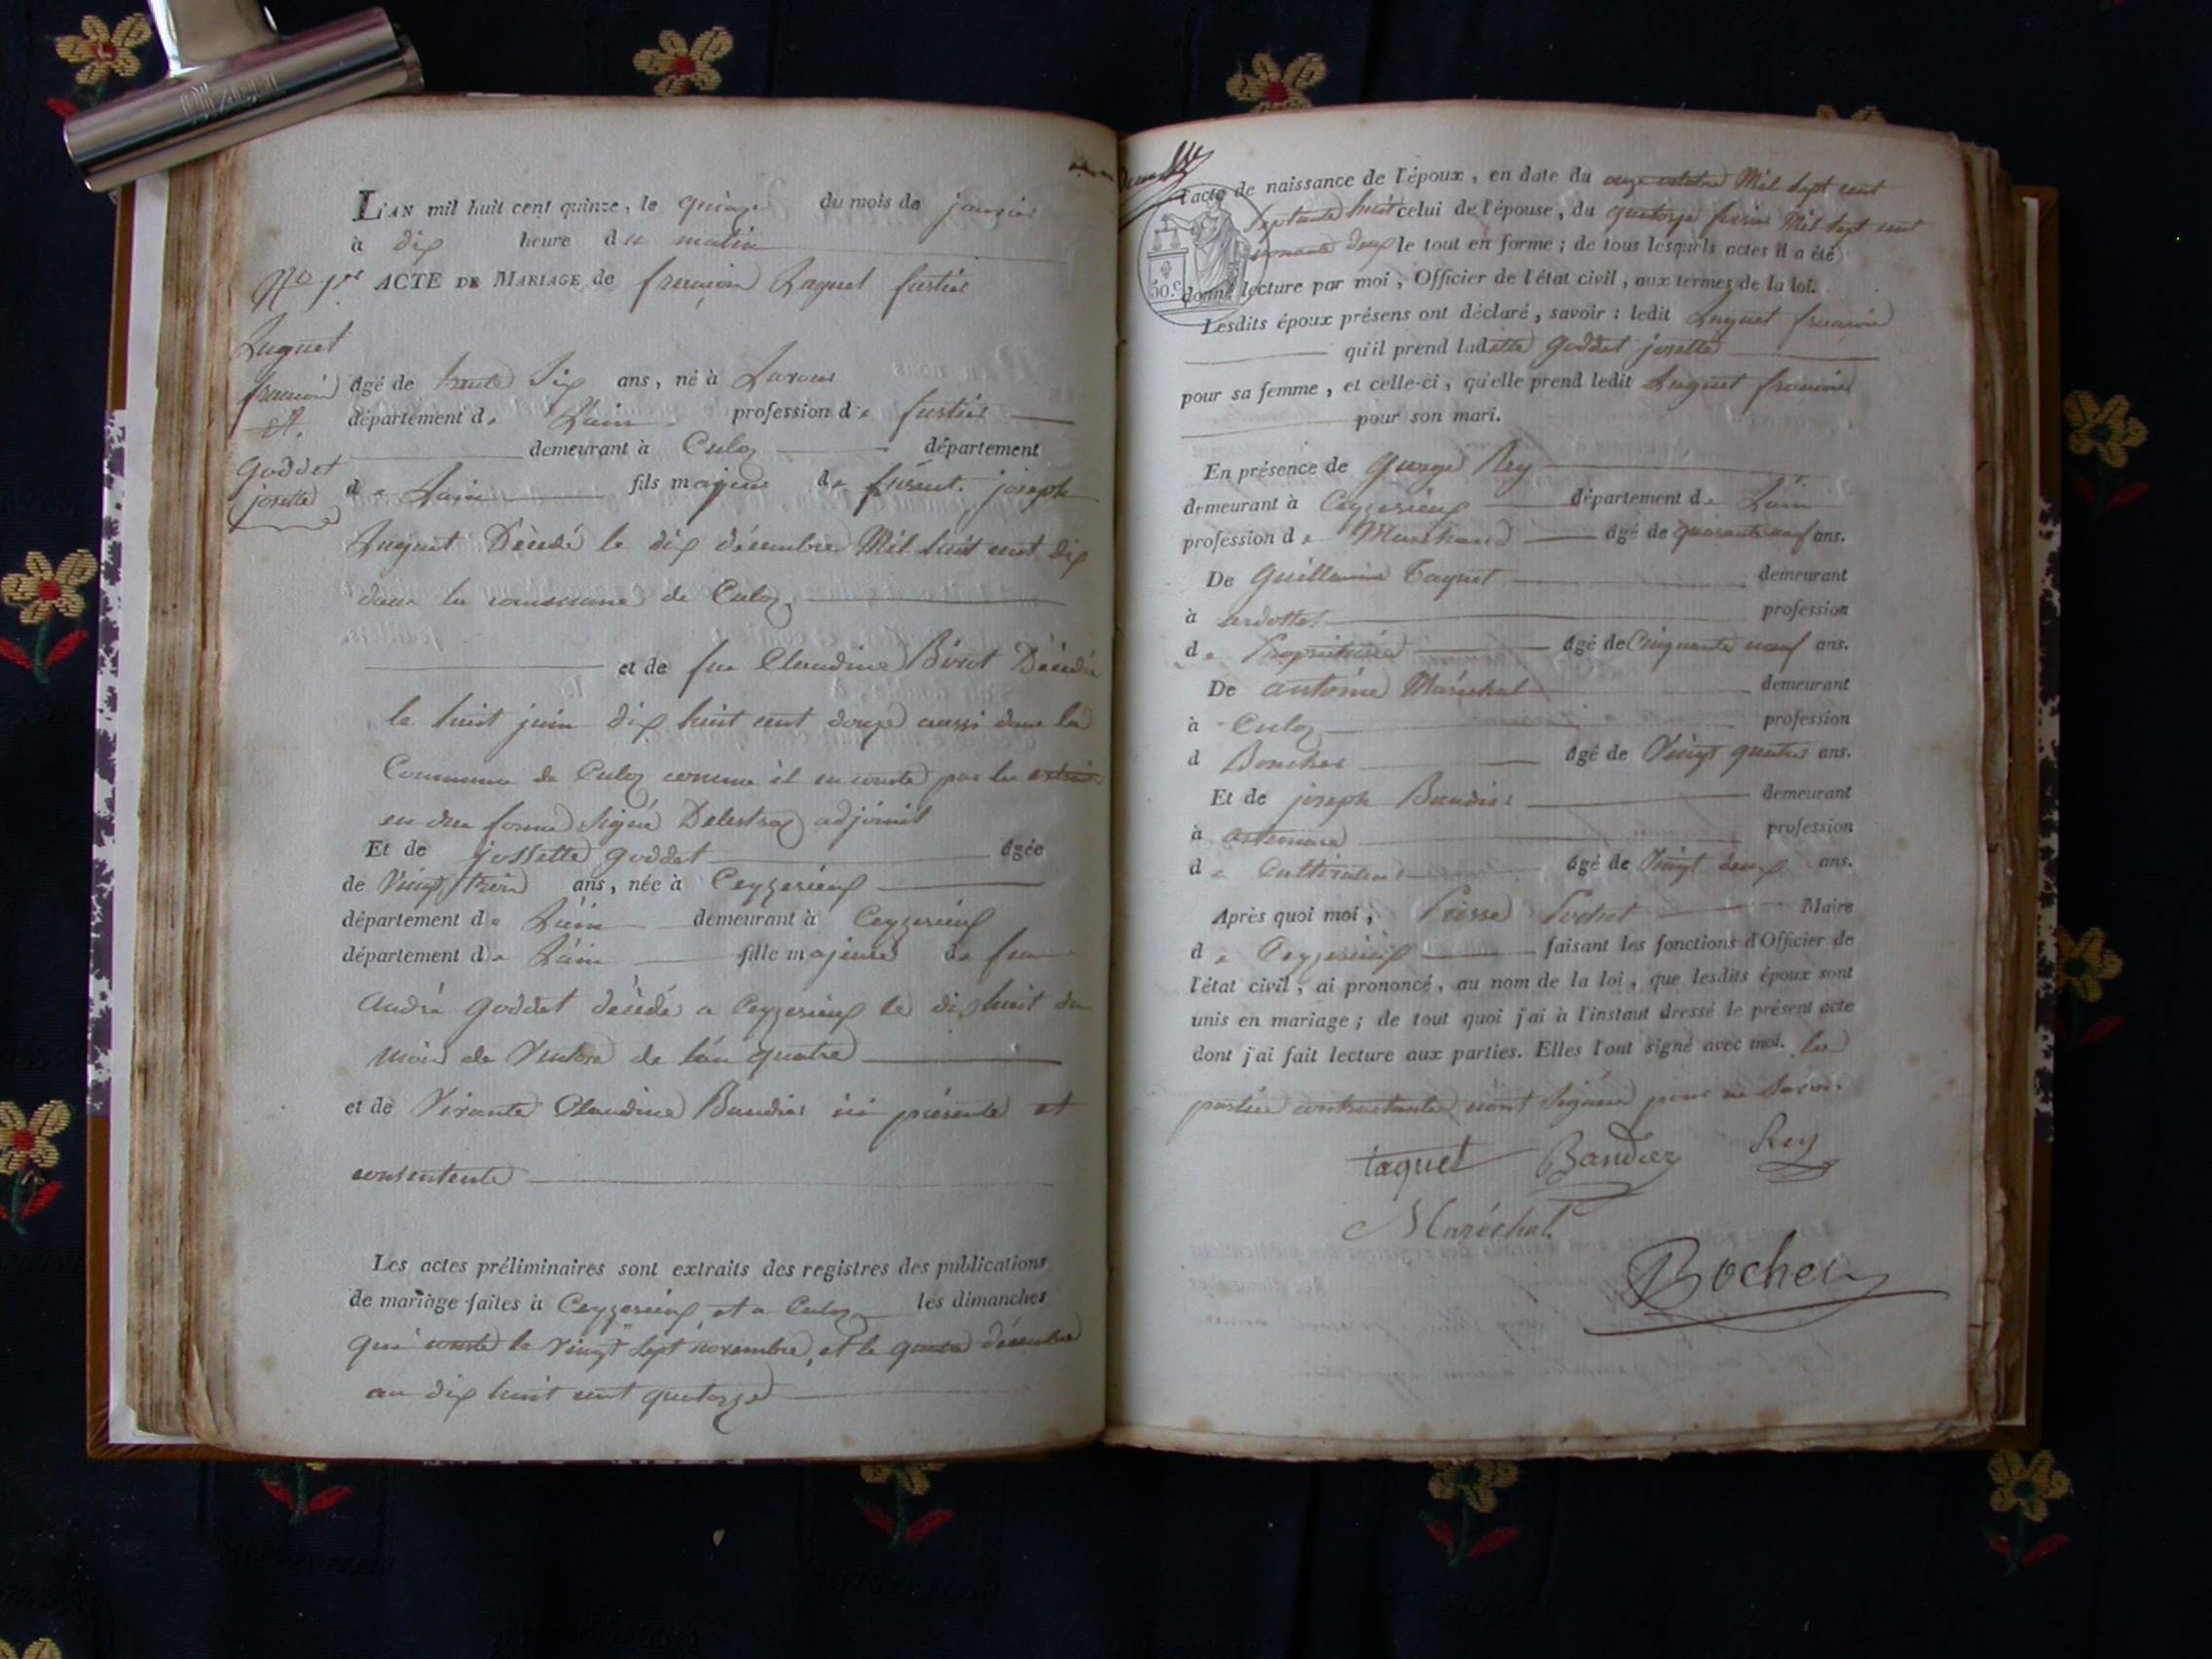 L'AN mil huit cent quinze, le quinze du mois de janvier
à dix heure du matin
N° 1er ACTE DE MARIAGE de françois Luguet fustier
Luguet
françois
et
goddet
josette
âgé de trente Six ans, né à Lavour
département de L'ain profession de fustier
demeurant à Culoz département
de Lain fils majeur de joseph
Luguet Décédé le dix décembre Mil huit cent dix
dans la commune de Culoz
et de feu Claudine Décédée
le huit juin dix huit cent douze aussi dans la
Commune de Culoz comme il en conste par les
en due forme Signé Delestraz adjoint
Et de jossette goddet âgée
de Vingt trois ans, née à Ceyzerieux
département de Lain demeurant à Ceyzerieux
département de Lain fille majeure de feu
André goddet décédé a Ceyzerieux le dix huit du
mois de Ventose de l'an quatre
et de Vivante Claudine Baudier ici présente et
consentente
Les actes préliminaires sont extraits des registres des publications
de mariage faites à Ceyzerieux, et a Culoz les dimanches
qui conste le Vingt Sept novembre, et le décembre
an dix huit cent quatorze
l'acte de naissance de l'époux, en date du onze octobre Mil Sept cent
Septante huit celui de l'épouse, du quatorze Mil Sept cent
nonante deux le tout en forme; de tous lesquels actes il a été
50.c
donné lecture par moi, Officier de l'état civil, aux termes de la loi.
Lesdits époux présens ont déclaré, savoir: ledit Luguet françois
qu'il prend ladite goddet josette
pour sa femme, et celle-ci, qu'elle prend ledit Luguet françois
pour son mari.
En présence de George Rey
demeurant à Ceyzerieux département de Lain
profession de Marchand âgé de quarante neuf ans.
De Guillaume Taguet demeurant
à ardosset profession
de Propriétaire âgé de Cinquante neuf ans.
De antoine Maréchal demeurant
à Culoz profession
d Boucher âgé de Vingt quatre ans.
Et de joseph Baudier demeurant
à artemare profession
de Cultivateur âgé de Vingt deux ans.
Après quoi moi, Maire
de Ceyzerieux faisant les fonctions d'Officier de
l'état civil, ai prononcé, au nom de la loi, que lesdits époux sont
unis en mariage; de tout quoi j'ai à l'instant dressé le présent acte
dont j'ai fait lecture aux parties. Elles l'ont signé avec moi. les
parties contractantes n'ont Signées pour ne Savoir
taguet Bandier Rey
Maréchal